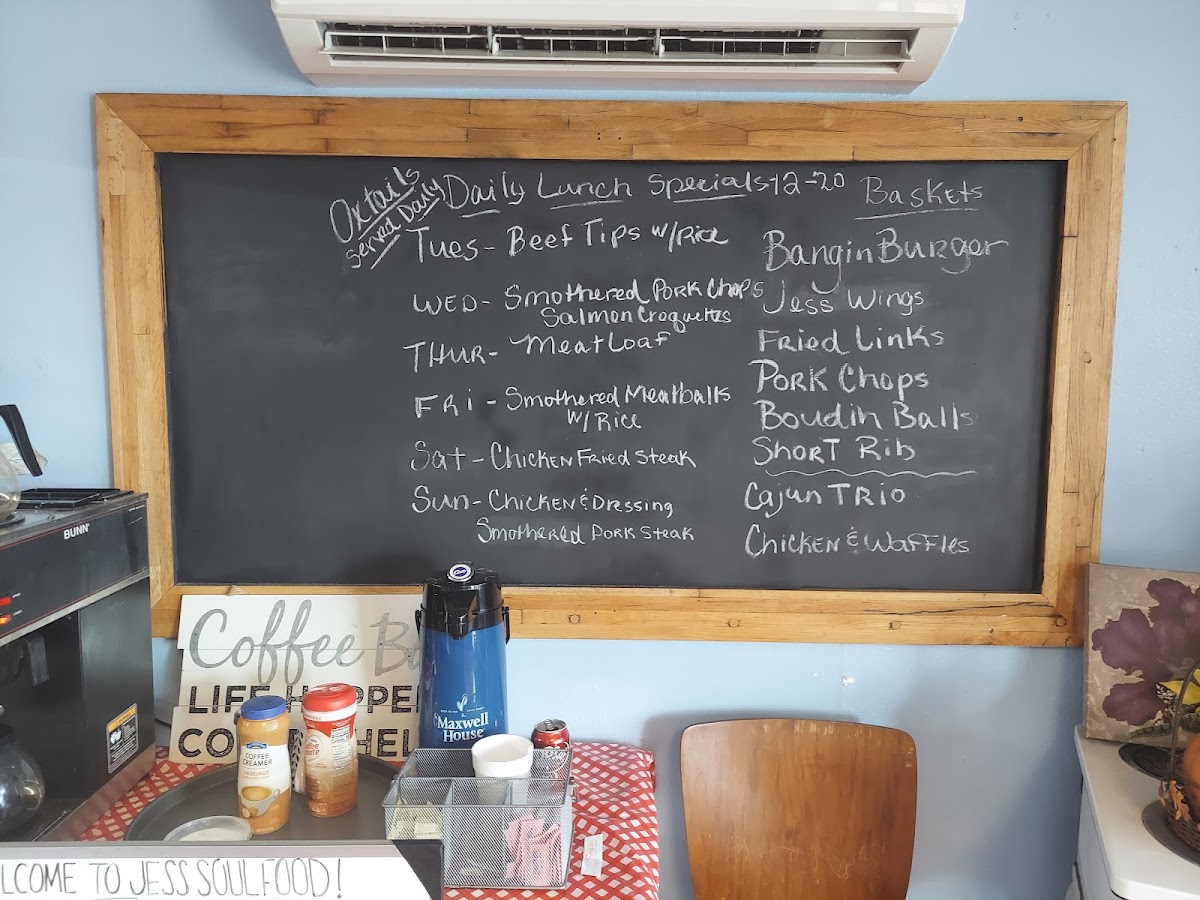 Oxtails
Served Daily
Daily Lunch Specials 12-20
Tues - Beef Tips w/Rice
WED - Smothered Pork Chops
Salmon Croquettes
THUR - Meat Loaf
FRi - Smothered Meatballs
w/Rice
Sat - Chicken Fried Steak
Sun - Chicken & Dressing
Smothered Pork Steak
Baskets
Bangin Burger
Jess Wings
Fried Links
Pork Chops
Boudin Balls
Short Rib
Cajun TRio
Chicken & Waffles
BUNN
Coffee Ba
LIFE HAPPE
CO HEL
Maxwell
House
COFFEE
CREAMER
HAZELNUT
LCOME TO JESS SOULFOOD!